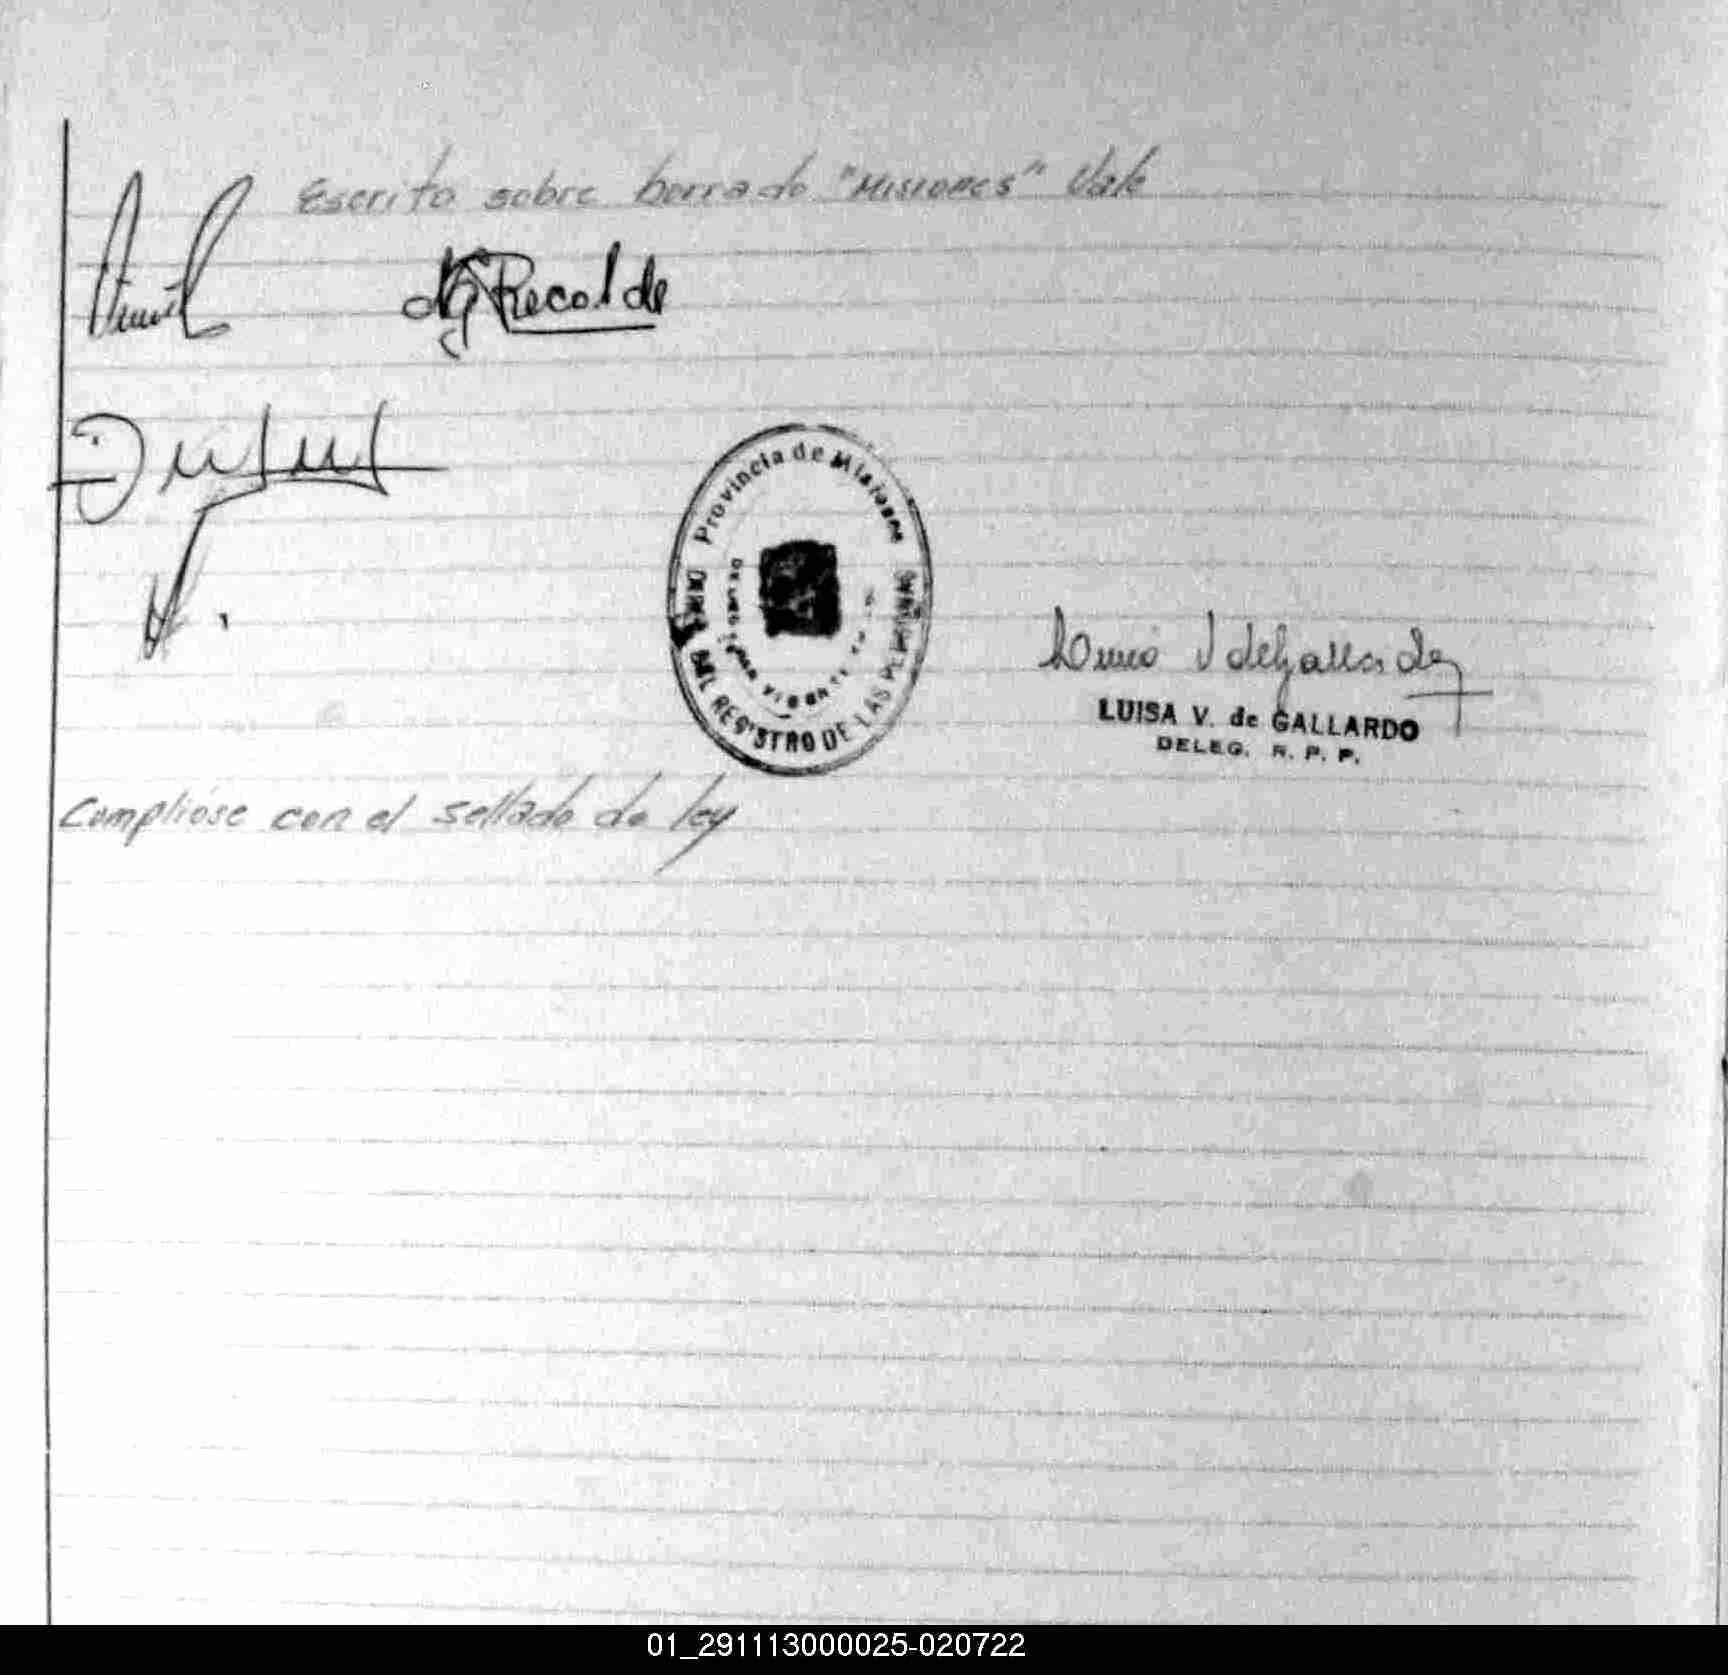 Escrito sobre borrado "Misiones" Vale
Recalde
Provincia de Misiones
DEL REGISTRO DE LAS PERSONAS
LUISA V. de GALLARDO
DELEG. R. P. P.
Cumplióse con el sellado de ley
01_291113000025-020722